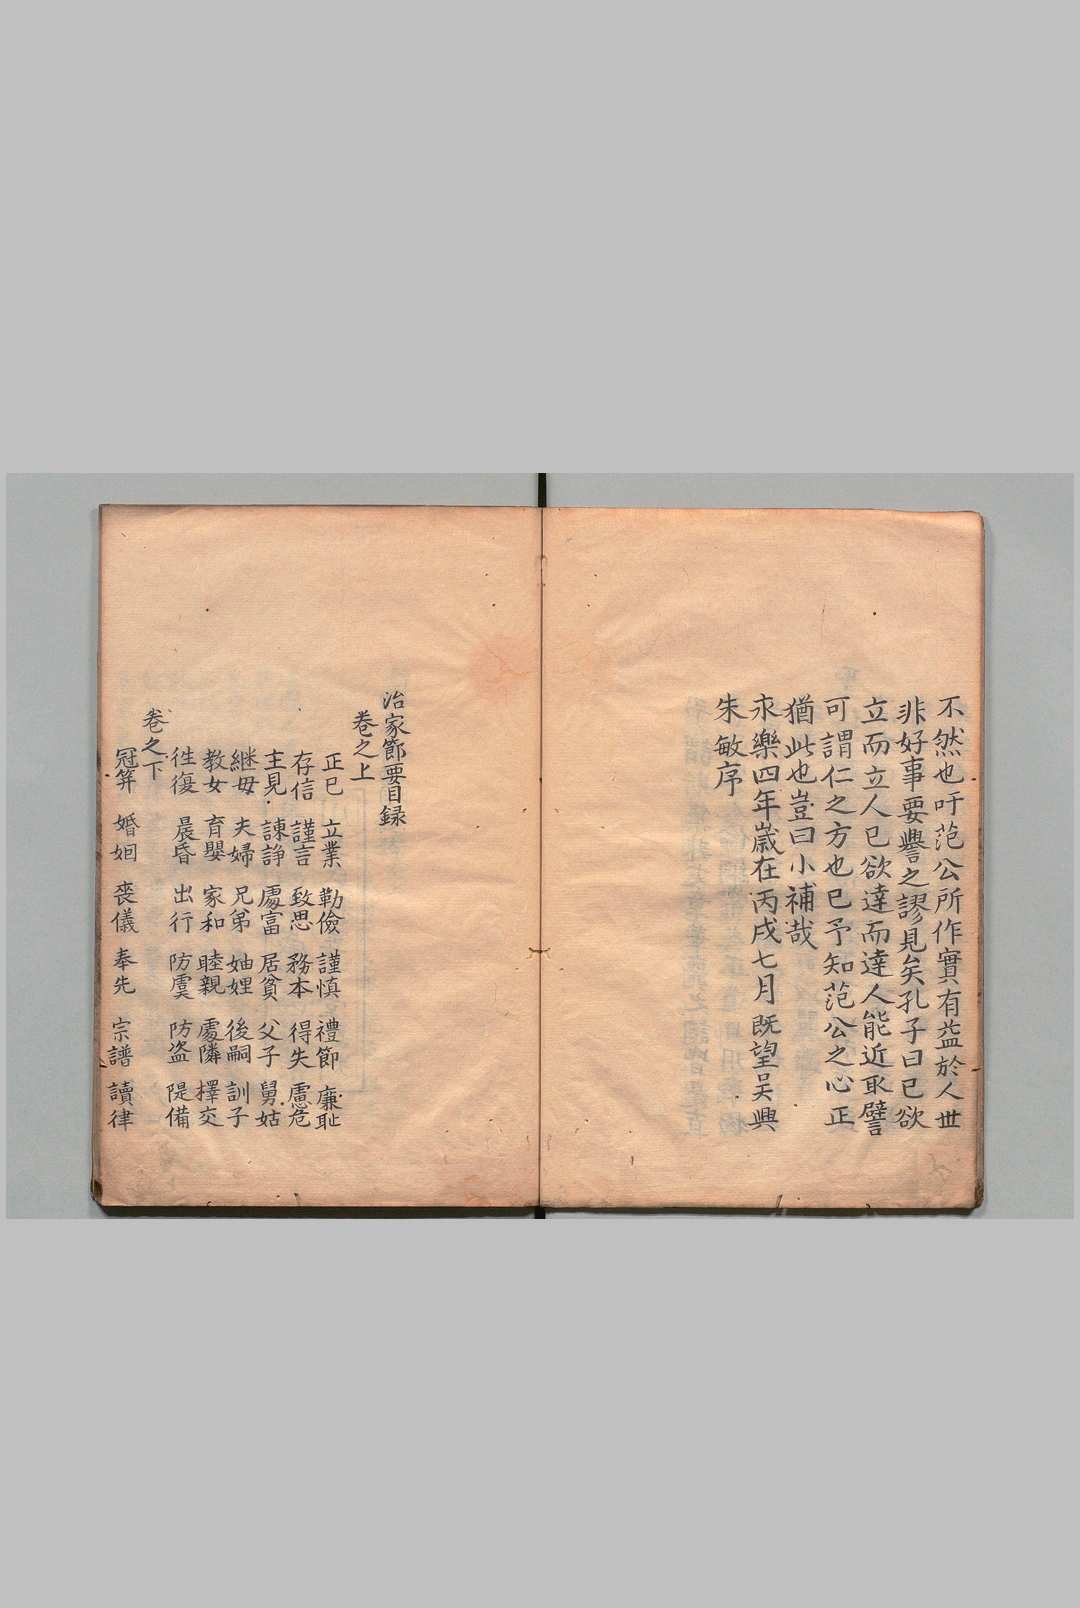 不然也吁范公所作實有益於人世
非好事要譽之謬見矣孔子曰已欲
立而立人已欲達而達人能近取譬
可謂仁之方也已予知范公之心正
猶此也豈曰小補哉
永樂四年嵗在丙戌七月既望吴興
朱敏序
治家節要目録
卷之上
正已 立業 勤儉 謹慎 禮節 廉耻
存信 謹言 致思 務本 得失 慮危
主見 諫諍 處富 居貧 父子 舅姑
継母 夫婦 兄弟 妯娌 後嗣 訓子
教女 育嬰 家和 睦親 處隣 擇交
徃復 晨昏 出行 防虞 防盗 隄備
卷之下
冠笄 婚姻 喪儀 奉先 宗譜 讀律